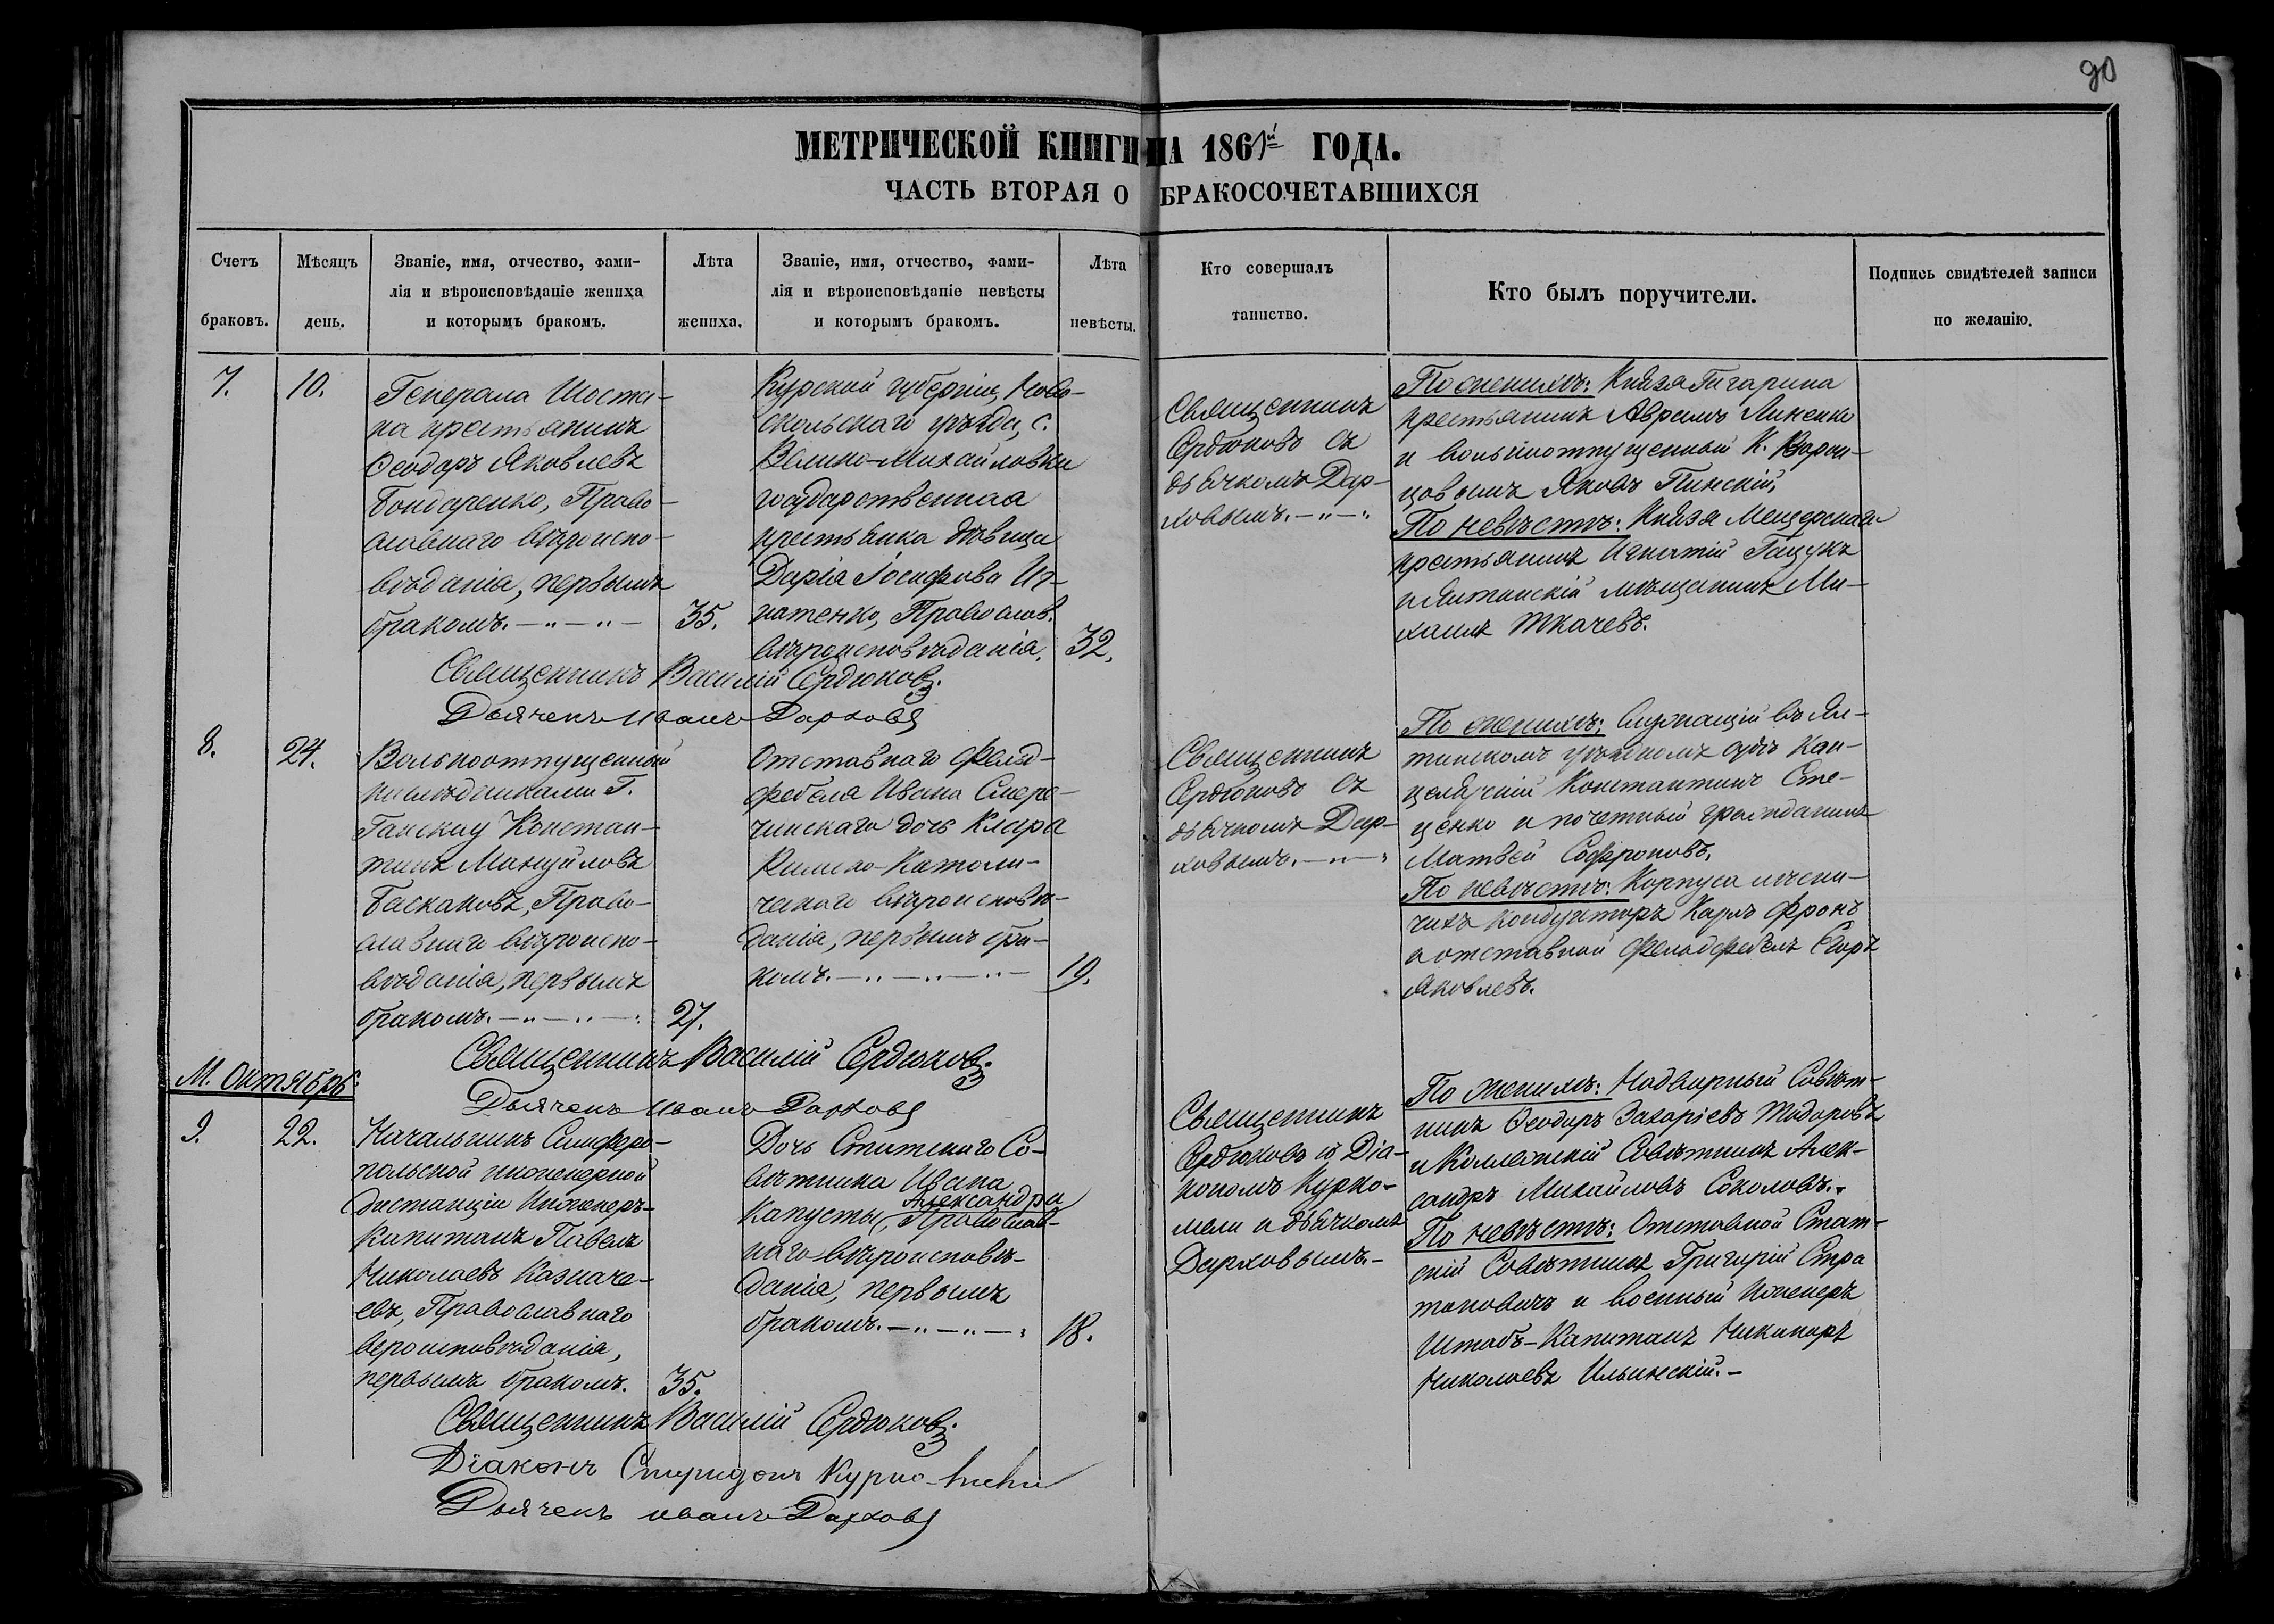 90
МЕТРИЧЕСКОЙ КНИГИ НА 1861й ГОДА.
ЧАСТЬ ВТОРАЯ О БРАКОСОЧЕТАВШИХСЯ
Счетъ браковъ.
Мѣсяцъ день.
Званіе, имя, отчество, фами-
лія и вѣроисповѣданіе жениха
и которымъ бракомъ.
Лѣта жениха.
Званіе, имя, отчество, фами-
лія и вѣроисповѣданіе невѣсты
и которымъ бракомъ.
Лѣта невѣсты.
Кто совершалъ
таинство.
Кто былъ поручители.
Подпись свидѣтелей записи
по желанію.
7.
10.
Генерала Шоста-
ка крестьянинъ
Ѳеодоръ Яковлевъ
Бондаренко, Право-
славнаго вѣроиспо-
вѣданія, первымъ
бракомъ.
35.
Курской губерніи, Ново-
скольскаго уѣзда, с.
Велико-Михайловки
государственная
крестьянка дѣвица
Дарія Іосифова Иг-
натенко, Православ.
вѣроисповѣданія.
32.
Священникъ
Сердюковъ съ
дьячкомъ Дар-
ховымъ.
По женихѣ: Князя Гагарина
крестьянинъ Аврамъ Линенко
и вольноотпущенный К. Ворон-
цовымъ Яковъ Пинскій,
По невѣстѣ: Князя Мещерскаго
крестьянинъ Игнатій Гацукъ
и Ялтинскій мѣщанинъ Ми-
хаилъ Ткачевъ.
Священникъ Василій Сердюковъ.
Дьячекъ Иванъ Дарховъ
8.
24.
Вольноотпущенный
наслѣдниками Г.
Ганскау Констан-
тинъ Мануйловъ
Баскаковъ, Право-
славнаго вѣроиспо-
вѣданія, первымъ
бракомъ.
27.
Отставнаго Фельд-
фебеля Ивана Скере-
чинскаго дочь Клара
Римско-Католи-
ческаго вѣроисповѣ-
данія, первымъ бра-
комъ.
19.
Священникъ
Сердюковъ съ
дьячкомъ Дар-
ховымъ.
По женихѣ: Служащій въ Ял-
тинскомъ уѣздномъ судѣ Кан-
целярскій Константинъ Сте-
ценко и почетный гражданинъ
Матвей Софроновъ.
По невѣстѣ: Корпуса лѣсни-
чихъ кондукторъ Карлъ Фронъ
и отставной Фельдфебель Егоръ
Яковлевъ.
Священникъ Василій Сердюковъ.
Дьячекъ Иванъ Дарховъ
М. Октябрь:
9.
22.
Начальникъ Симферо-
польской инженерной
Дистанціи Инженеръ-
Капитанъ Павелъ
Николаевъ Казначе-
евъ, Православнаго
вероисповѣданія,
первымъ бракомъ.
35.
Дочь Статскаго Со-
вѣтника Ивана
Александра
Капусты, Православ-
наго вѣроисповѣ-
данія, первымъ
бракомъ.
18.
Священникъ
Сердюковъ съ Діа-
кономъ Курко-
мели и дьячкомъ
Дарховымъ.
По женихѣ: Надворный Совѣт-
никъ Ѳеодоръ Захаріевъ Тодоровъ
и Коллежскій Совѣтникъ Алек-
сандръ Михайловъ Соколовъ.
По невѣстѣ: Отставной Стат-
скій Совѣтникъ Григорій Стра
тановичъ и военный Инженеръ
Штабъ-Капитанъ Никаноръ
Николаевъ Ильинскій.
Священникъ Василій Сердюковъ.
Діаконъ Спиридонъ Курко-мели
Дьячекъ иванъ Дарховъ